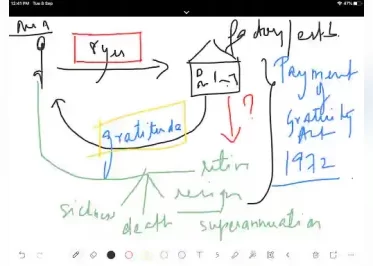 12:41 PM Tue 5 Sep
47%
Mr A
8 yrs
factory/estb.
?
gratitude
Payment
of
Gratuity
Act
1972
retire
resign
sickness
death
superannuation